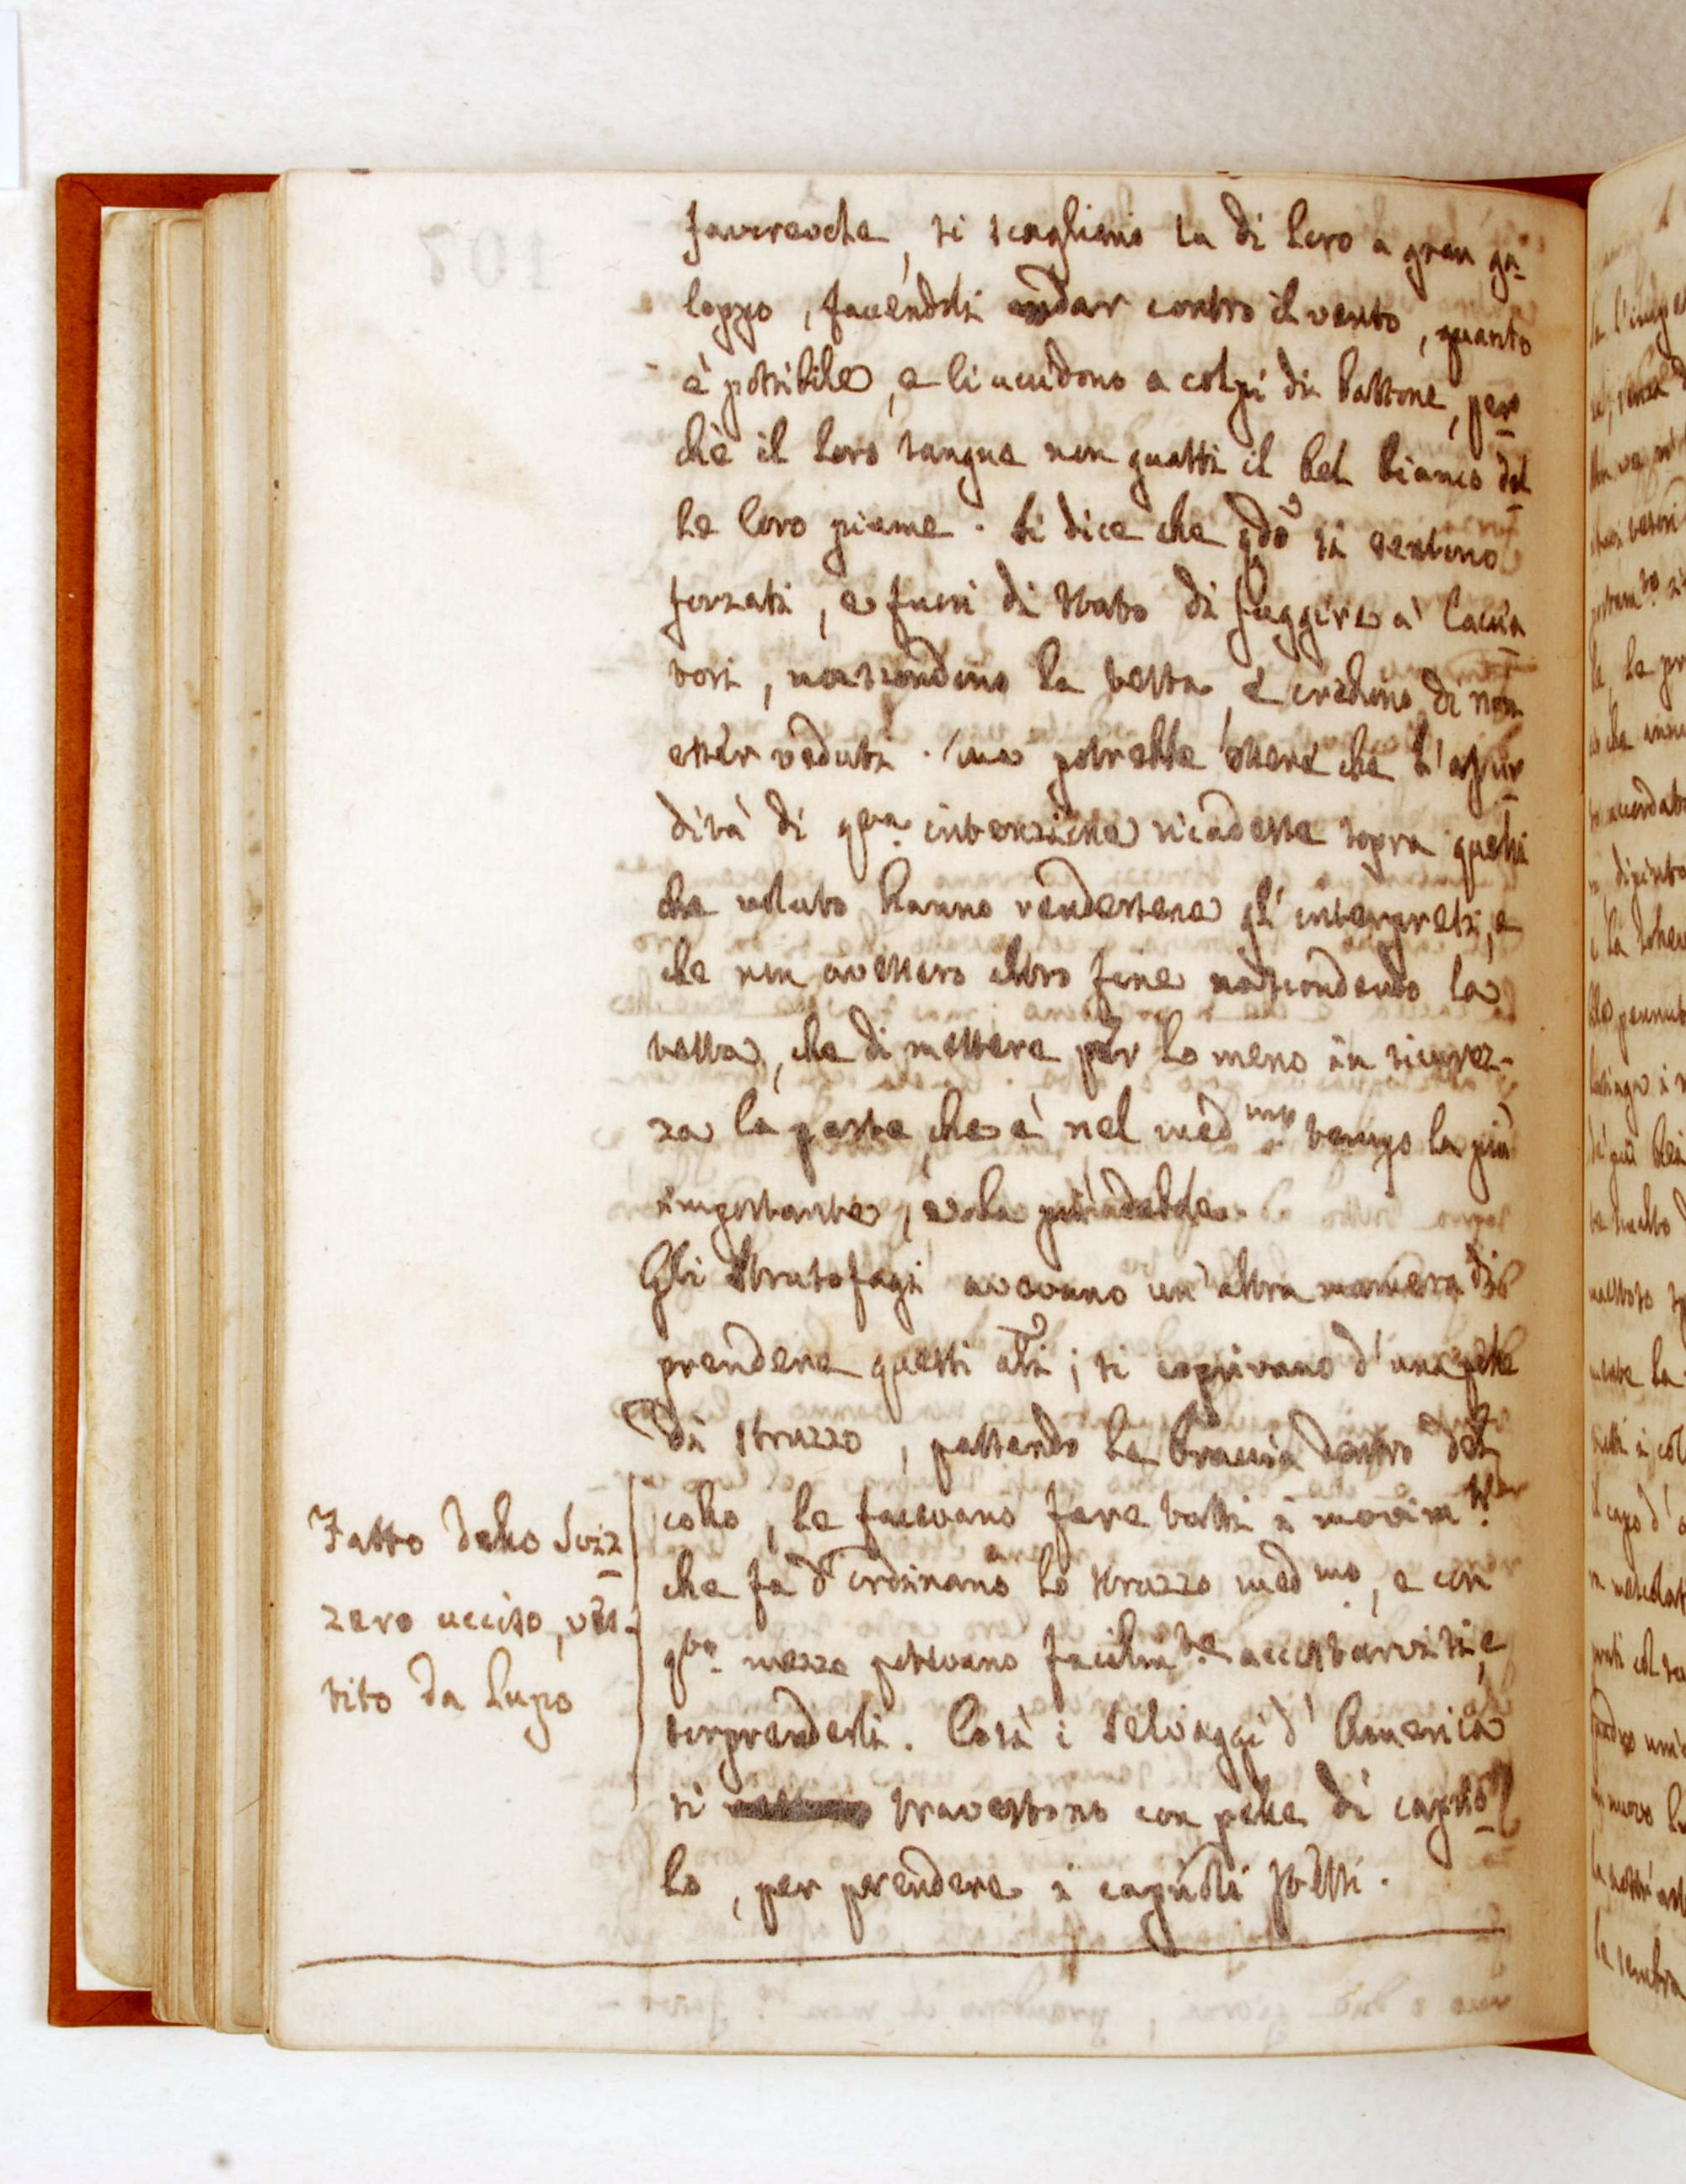 favorevole, si scagliano su di loro a gran ga-
loppo, facendoli andar contro il vento, quanto
è possibile, e li uccidono a colpi di bastone, per-
chè il loro sangue non guasti il bel bianco del-
le loro piume. Si dice che qdo si sentono
forzati, e fuori di stato di fuggire a' caccia-
tori, nascondono la testa, e credono di non
esser veduti. Ma potrebbe essere che l'assur-
dità di qta intenzione ricadesse sopra quelli
che voluto hanno rendersene gl'interpreti, e
che non avessero altro fine nascondendo la
testa, che di mettere per lo meno in sicurez-
za la parte, che è nel medmo tempo la più
importante, e la più debole.
Gli Strutofagi avevano un'altra maniera di
prendere questi ali; si coprivano d'una pelle
di Struzzo, passando le braccia dentro del
collo, le facevano fare tutti i movimti
che fa d'ordinario lo struzzo medmo, e con
qto mezzo potevano facilmte accostarvisi, e
sorprenderli. Così i selvaggi d'America
si travestono con pelle di caprio-
lo, per prendere i caprioli stessi.
Fatto dello Sviz-
zero ucciso, ves-
tito da Lupo
107